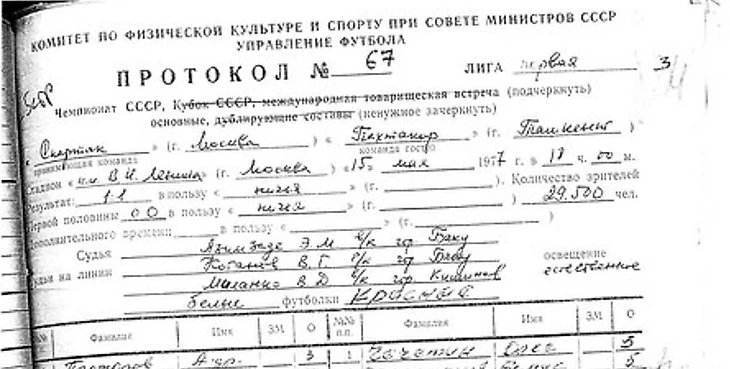 КОМИТЕТ ПО ФИЗИЧЕСКОЙ КУЛЬТУРЕ И СПОРТУ ПРИ СОВЕТЕ МИНИСТРОВ СССР
УПРАВЛЕНИЕ ФУТБОЛА
ПРОТОКОЛ № 67 ЛИГА первая
Чемпионат СССР, Кубок СССР, международная товарищеская встреча (подчеркнуть)
основные, дублирующие составы (ненужное зачеркнуть)
« Спартак » (г. Москва ) « Пахтакор » (г. Ташкент )
принимающая команда команда гостей
Стадион « им В.И. Ленина » (г. Москва ) « 15 » мая 1977 г. в 18 ч. 00 м.
Результат: 1:1 в пользу « ничья » (г. ). Количество зрителей
Первой половины 0:0 в пользу « ничья » (г. ) 29.500 чел.
Дополнительного времени: в пользу « » (г. )
Судья Азимзаде Э.М. гор Баку
Судьи на линии В.Г. гор Баку освещение
В.Д. гор Кишинев естественное
белые футболки красные
№ Фамилия Имя ЗМ О №№ п.п. Фамилия Имя ЗМ О
Прохоров 3 1 Олег 5
5